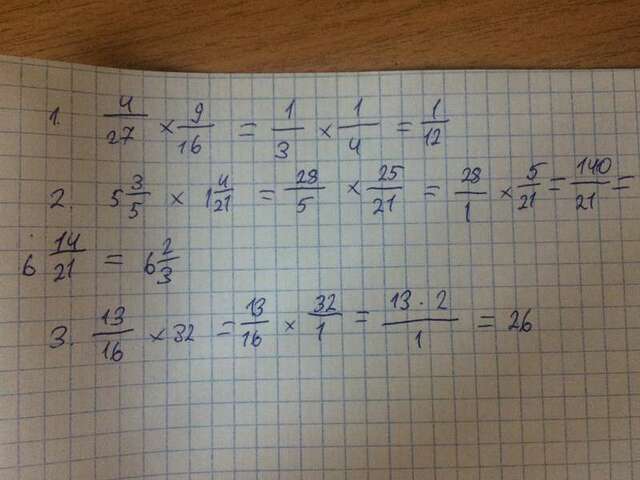 1. 4/27 × 9/16 = 1/3 × 1/4 = 1/12
2. 5 3/5 × 1 4/21 = 28/5 × 25/21 = 28/1 × 5/21 = 140/21 =
6 14/21 = 6 2/3
3. 13/16 × 32 = 13/16 × 32/1 = 13·2/1 = 26